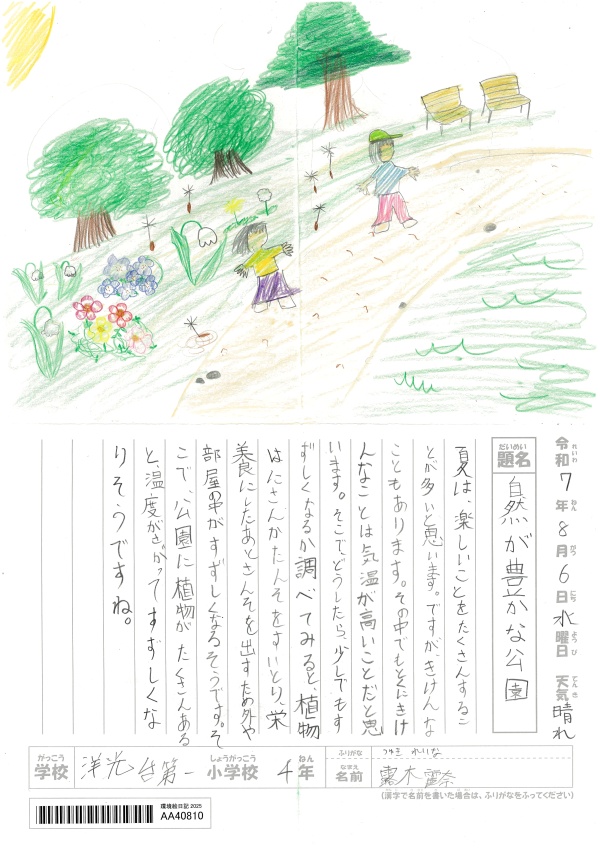 令和7年8月6日水曜日 天気晴れ
れいわ ねん がつ にち ようび てんき
だいめい
題名 自然が豊かな公園
夏は、楽しいことをたくさんするこ
とが多いと思います。ですが、きけんな
こともあります。その中でもとくにきけ
んなことは気温が高いことだと思
います。そこでどうしたら、少しでもす
ずしくなるか調べてみると、植物
はにさんかたんそをすいとり、栄
養にしたあとさんそを出すため外や
部屋の中がすずしくなるそうです。そ
こで、公園に植物がたくさんある
と、温度がさがってすずしくな
りそうですね。
がっこう しょうがっこう ねん
学校 洋光台第一小学校 4年
ふりがな
なまえ
名前 露木
(漢字で名前を書いた場合は、ふりがなをふってください)
環境絵日記 2025
AA40810